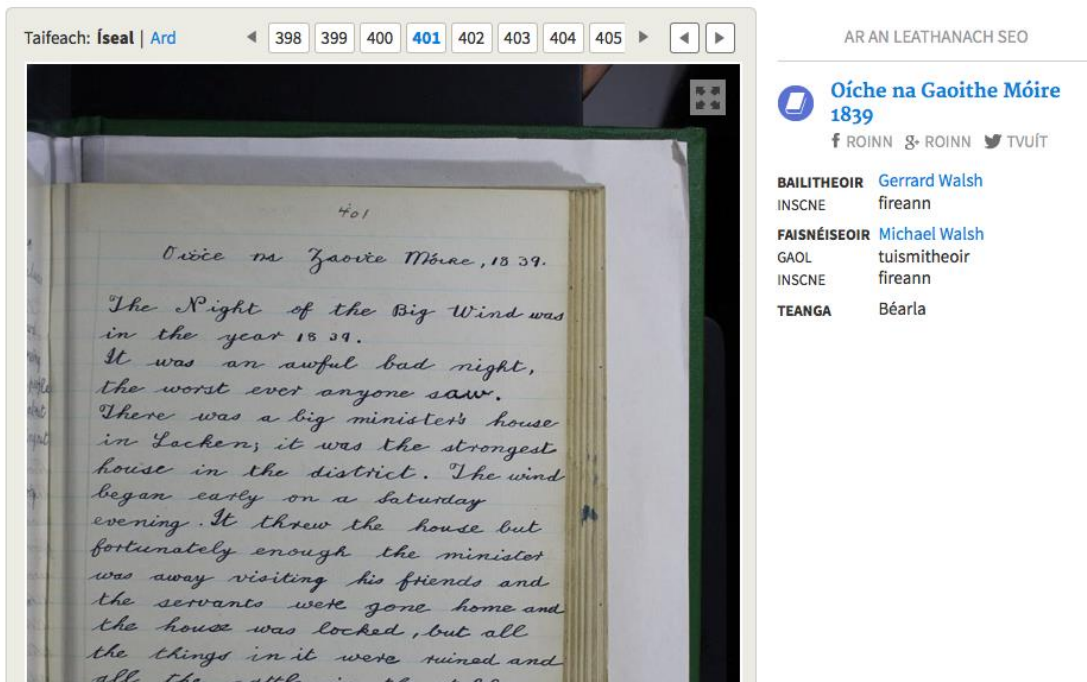 Taifeach: Íseal | Ard
398 399 400 401 402 403 404 405
401
Oiḋċe na Gaoiṫe Móire, 1839.
The Night of the Big Wind was
in the year 1839.
It was an awful bad night,
the worst ever anyone saw.
There was a big minister's house
in Lacken; it was the strongest
house in the district. The wind
began early on a Saturday
evening. It threw the house but
fortunately enough the minister
was away visiting his friends and
the servants were gone home and
the house was locked, but all
the things in it were ruined and
all the cattle in the
AR AN LEATHANACH SEO
Oíche na Gaoithe Móire
1839
ROINN g+ ROINN TVUÍT
BAILITHEOIR Gerrard Walsh
INSCNE fireann
FAISNÉISEOIR Michael Walsh
GAOL tuismitheoir
INSCNE fireann
TEANGA Béarla